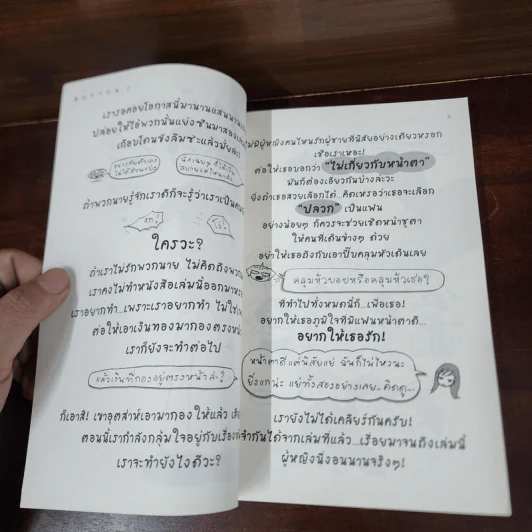 BOY FOR
เรารอคอยโอกาสนี้มานานแสนนาน
ปล่อยให้ไอ้พวกนั้นแย่งซีนมาสอง
เกือบโดนขังลืมซะแล้วมั้ยล่ะ!
ถ้าพวกนายรู้จักเราดีก็จะรู้ว่าเราเป็นคน
ใครวะ?
ถ้าเราไม่รักพวกนาย ไม่คิดถึงพวก
เราคงไม่ทำหนังสือเล่มนี้ออกมา
เราอยากทำ...เพราะเราอยากทำ ไม่ใช่
ต่อให้เอาเงินทองมากองตรง
เราก็ยังจะทำต่อไป
แล้วเงินที่กองอยู่ตรงหน้าล่ะ?
ก็เอาสิ! เขาอุตส่าห์เอามากองให้แล้ว
ตอนนี้เรากำลังกลุ้มใจอยู่กับเรื่อง
เราจะทำยังไงดีวะ?
ไม่มีผู้หญิงคนไหนรักผู้ชายที่นิสัยอย่างเดียวหรอก
เชื่อเราเหอะ!
ต่อให้เธอบอกว่า "ไม่เกี่ยวกับหน้าตา"
มันก็ต้องเอี่ยวกันบ้างล่ะวะ
ยิ่งถ้าเธอสวยเลือกได้..คิดเหรอว่าเธอจะเลือก
"ปลวก" เป็นแฟน
อย่างน้อยๆ ก็ควรจะช่วยเชิดหน้าชูตา
ให้คนที่เดินข้างๆ ด้วย
อย่าให้เธอถึงกับเอาปี๊บคลุมหัวเดินเลย
คลุมหัวบอยหรือคลุมหัวเธอ?
ที่ทำไปทั้งหมดนี่ก็...เพื่อเธอ!
อยากให้เธอภูมิใจที่มีแฟนหน้าตาดี...
อยากให้เธอรัก!
หน้าตาดี แต่นิสัยแย่ ฉันก็ไม่ไหวนะ
ยิ่งแกน่ะ แย่ทั้งสองอย่างเลย..คิดดู...
เรายังไม่ได้เคลียร์กันครับ!
จำกันได้จากเล่มที่แล้ว...เรื่อยมาจนถึงเล่มนี้
ผู้หญิงนี่งอนนานจริงๆ!